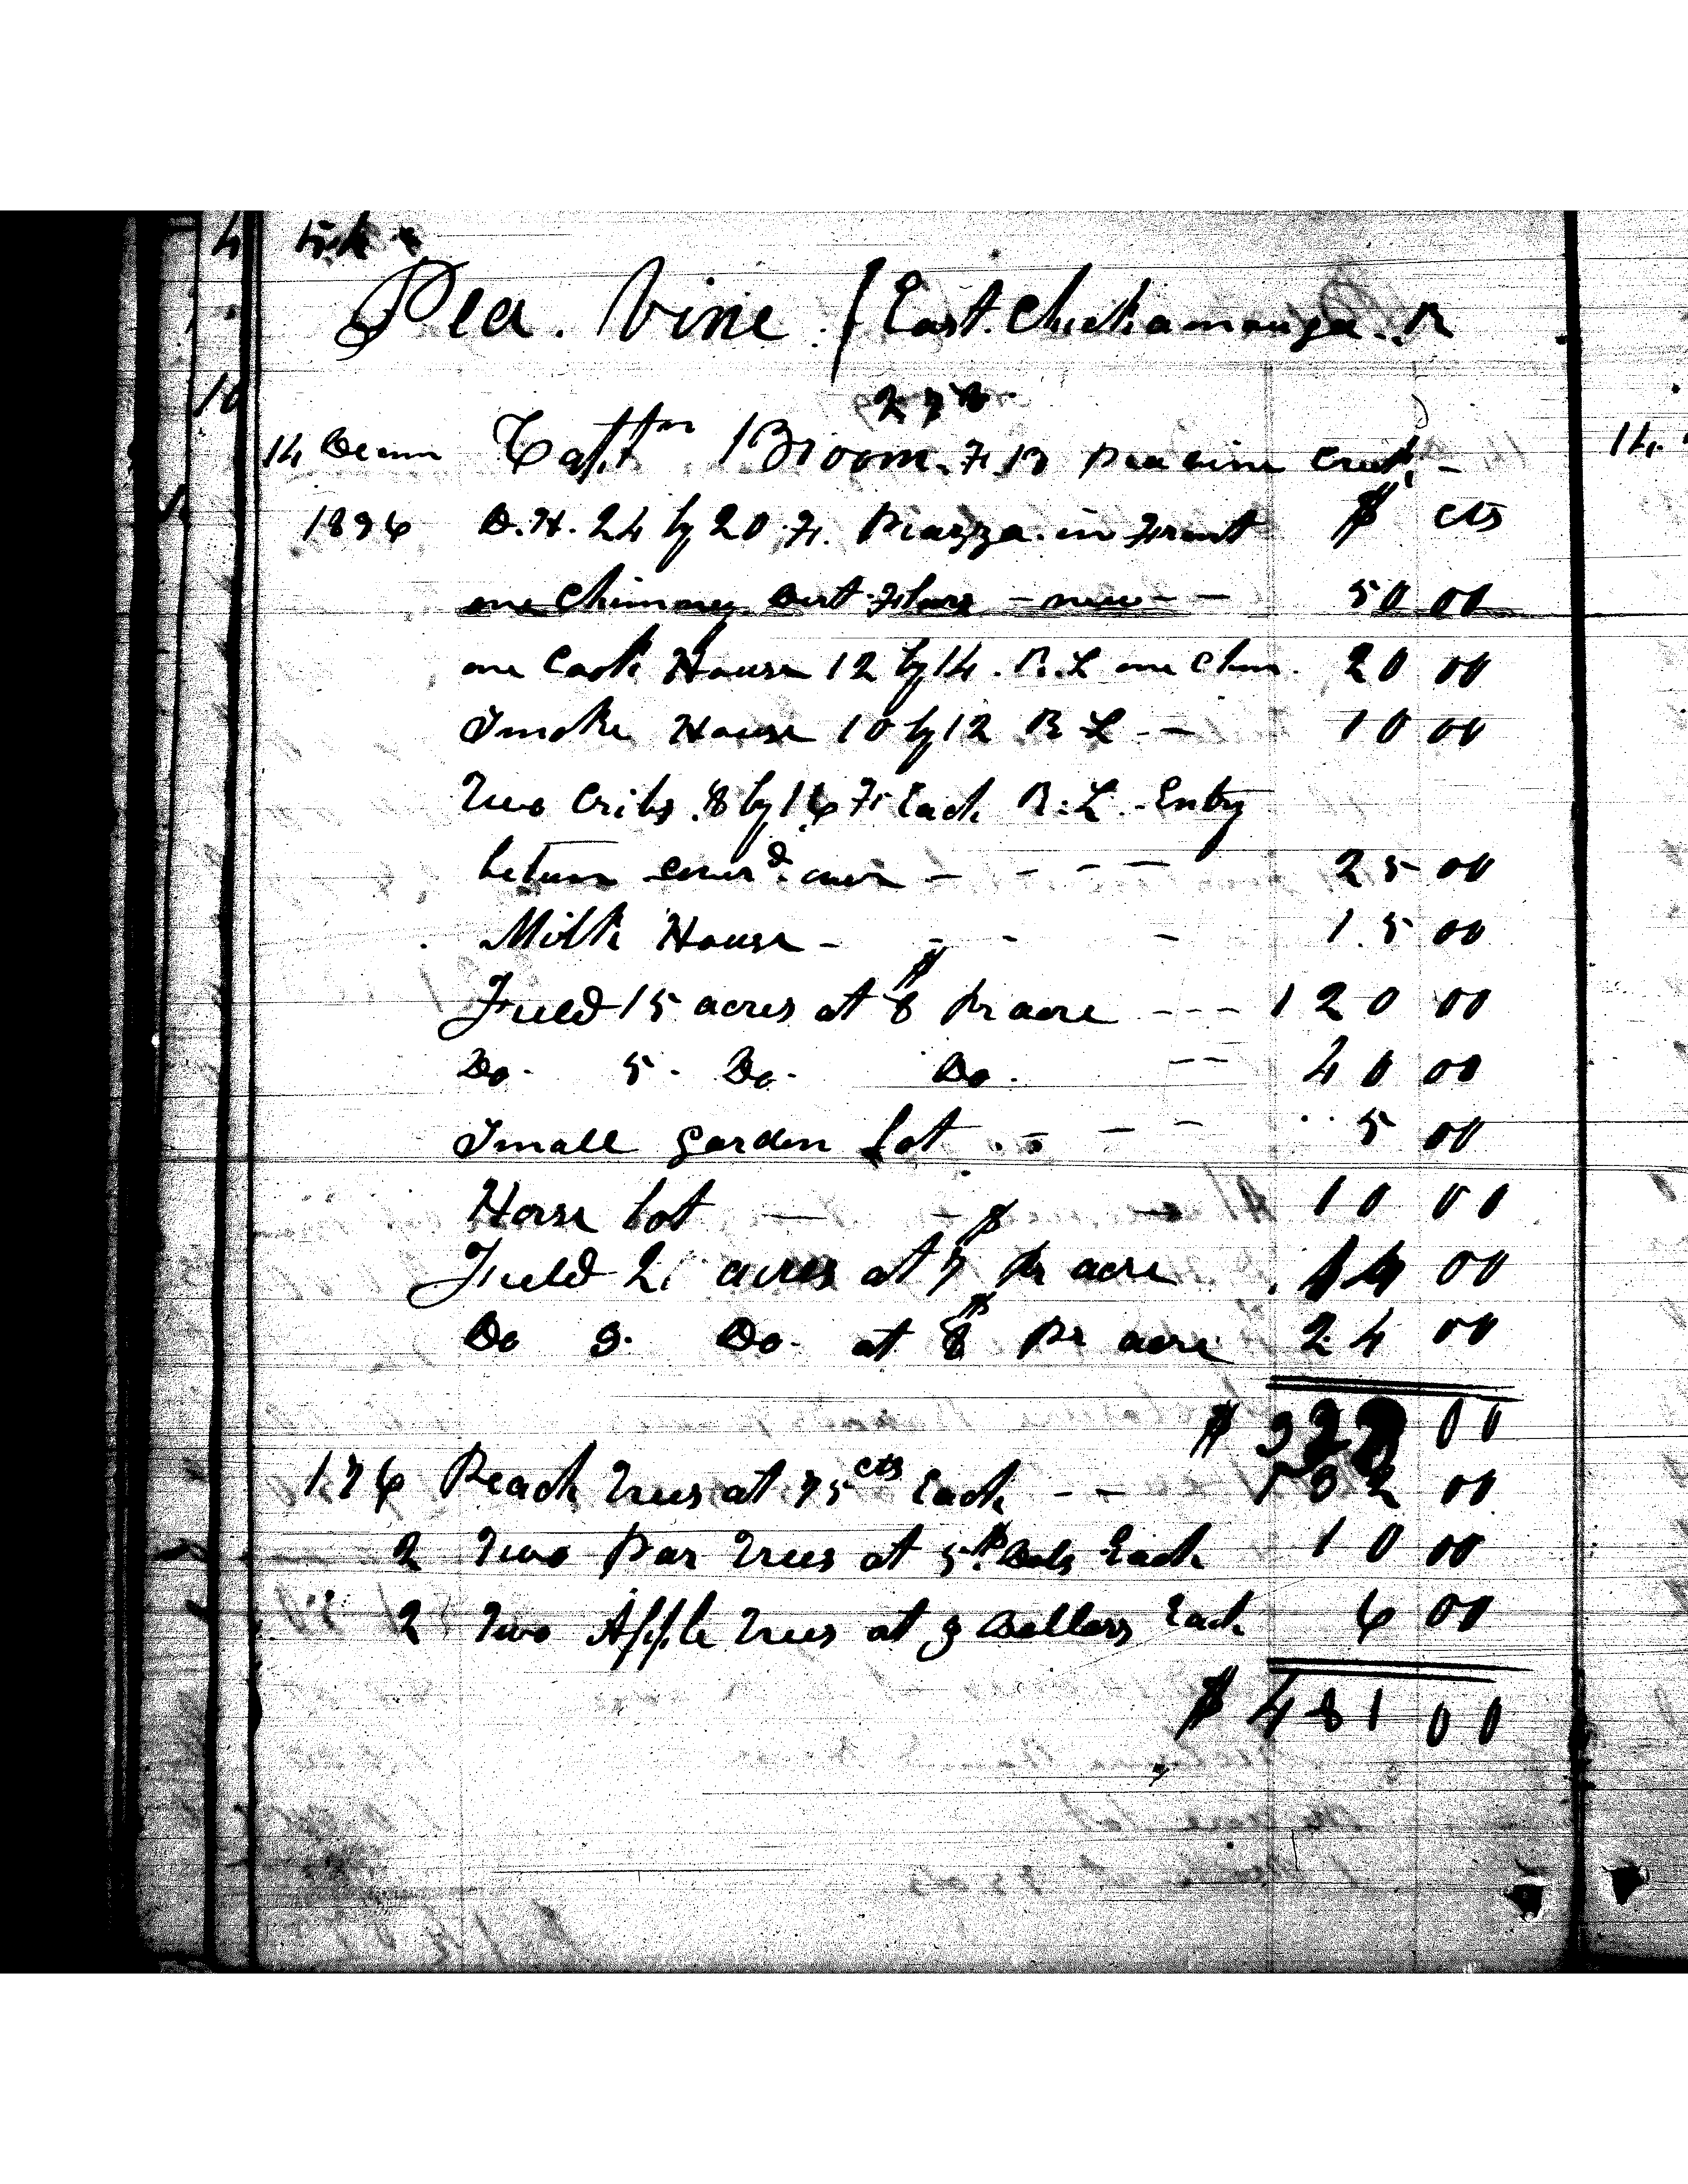 Pea. Vine. / East. Chickamauga. R
278
14 Decem Captn Broom. F. B Peavine Creek -
1836 D.H. 24 by 20 F. Piazza. in Front $ cts
one Chimney Dirt Floor - new - - 50 00
one Cook House 12 by 14. R. L one Chim. 20 00
Smoke House 10 by 12 R L - - 10 00
Two Cribs. 8 by 16 Ft Each R. L. - Entry
between cover'd. over - - - - 25 00
Milk House - - - - 15 00
Field 15 acres at $8 pr acre - - - 120 00
Do. 5. Do. Do. - - 40 00
Small Garden Lot . - - - 5 00
Horse Lot - - - 10 00
Field 2 acres at $7 pr acre 14 00
Do 3. Do. at $8 pr acre 24 00
$ 333 00
176 Peach Trees at 75cts Each - - 132 00
2 Two Par Trees at 5$ Dols Each 10 00
2 Two Apple Trees at 3 Dollars Each 6 00
$ 481 00
14.